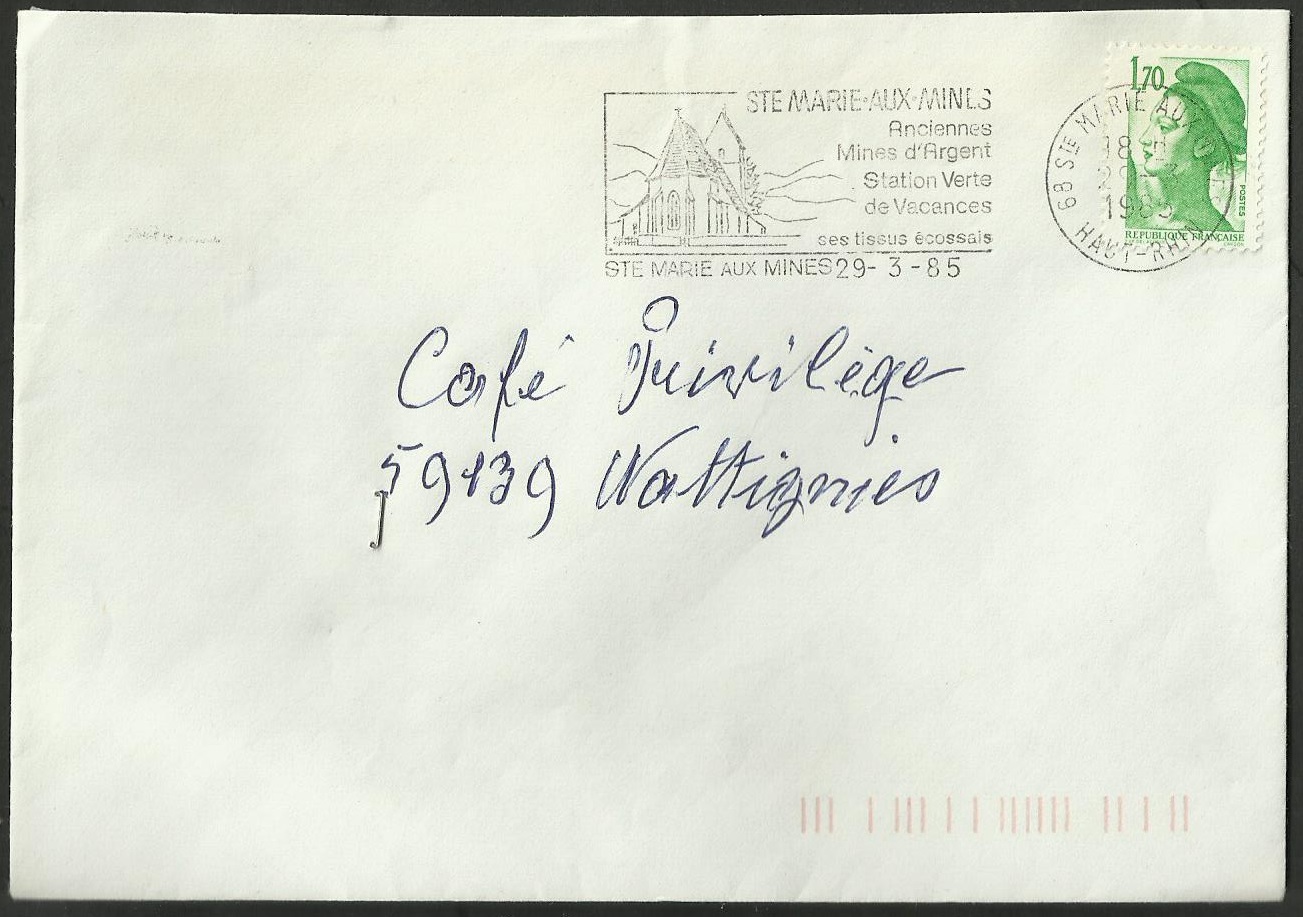 STE MARIE-AUX-MINES
Anciennes
Mines d'Argent
Station Verte
de Vacances
ses tissus écossais
STE MARIE AUX MINES 29-3-85
1,70
68 STE MARIE AUX
18
1985
HAUT-RHIN
POSTES
REPUBLIQUE FRANÇAISE
Café Privilège
59139 Wattignies